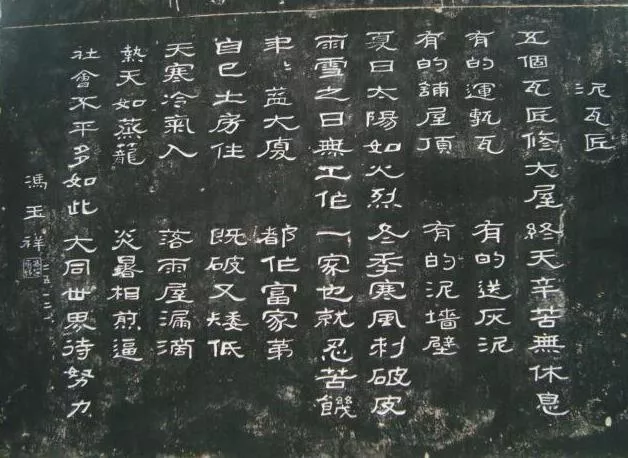 泥瓦匠
五個瓦匠修大屋 終天辛苦無休息
有的運甎瓦 有的送灰泥
有的舖屋頂 有的泥墻壁
夏日太陽如火烈 冬季寒風刺破皮
雨雪之日無工作 一家也就忍苦饑
年〻蓋大廈 都作富家第
自己土房住 既破又矮低
天寒冷氣入 落雨屋漏滴
熱天如蒸籠 炎暑相煎逼
社會不平多如此 大同世界待努力
馮玉祥